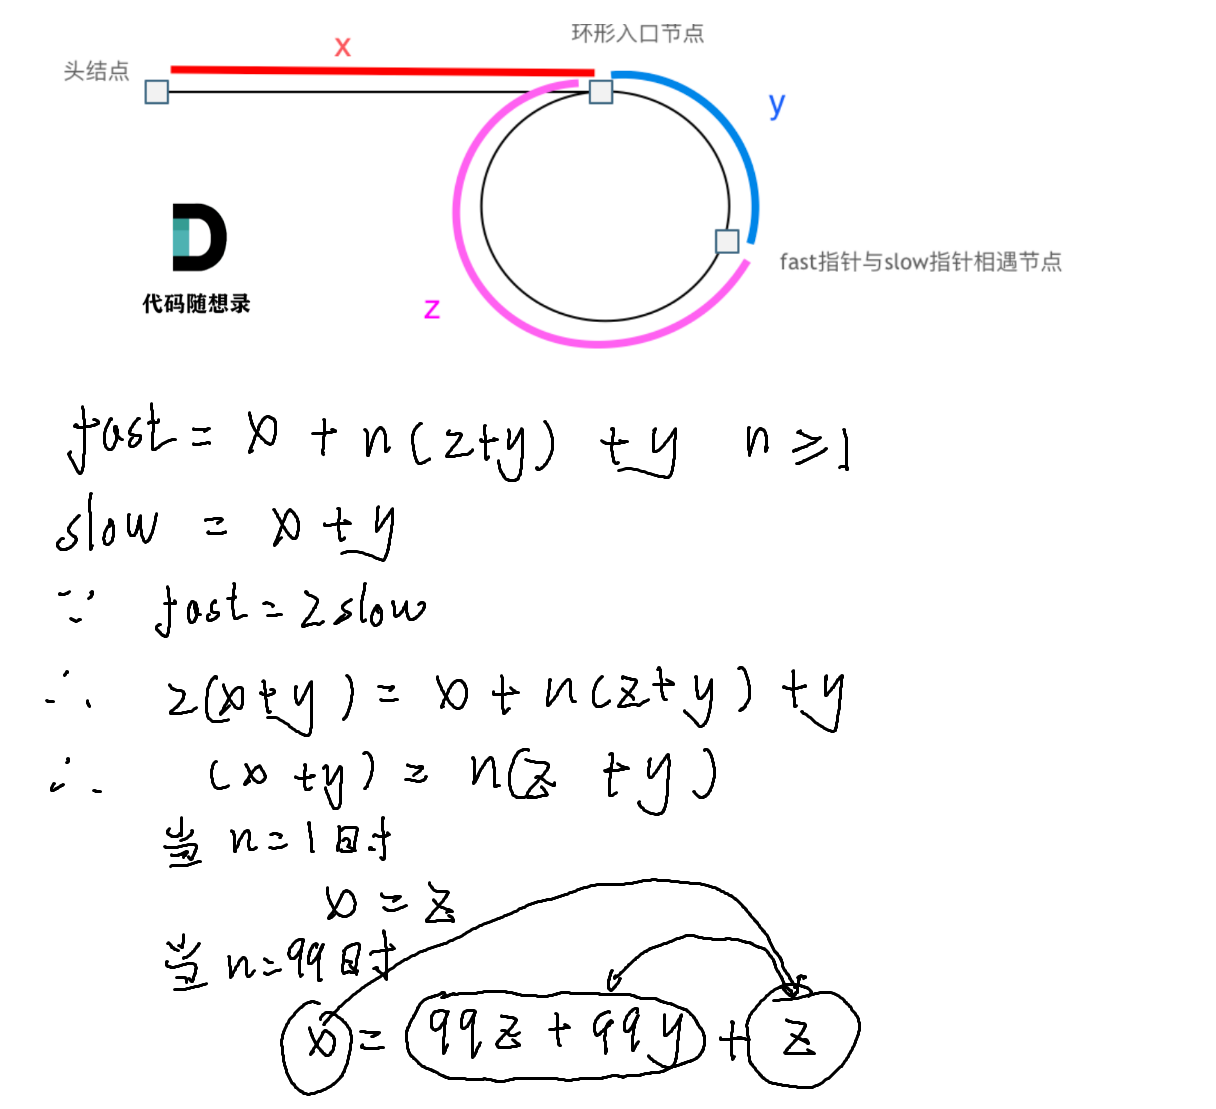 环形入口节点
x
头结点
y
fast指针与slow指针相遇节点
代码随想录
z
fast = x + n(z+y) + y n ≥ 1
slow = x + y
∵ fast = 2slow
∴ 2(x+y) = x + n(z+y) + y
∴ (x+y) = n(z+y)
当 n=1时
x = z
当 n=99时
x = 99z + 99y + z